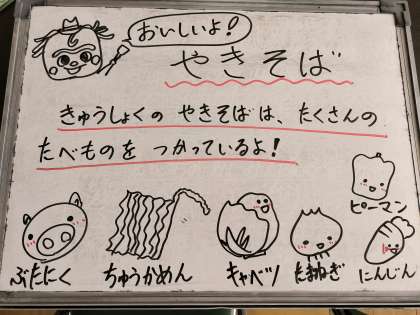 おいしいよ!
やきそば
きゅうしょくの やきそばは、たくさんの
たべものを つかっているよ!
ピーマン
ぶたにく ちゅうかめん キャベツ たまねぎ にんじん